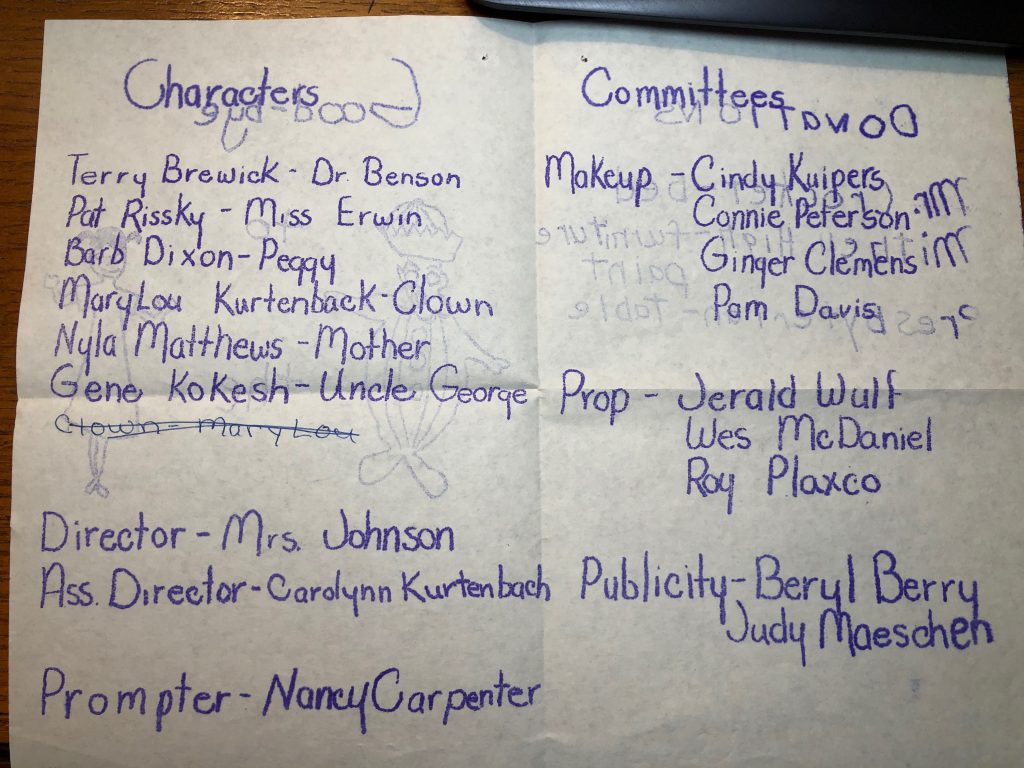 Characters
Terry Brewick - Dr. Benson
Pat Rissky - Miss Erwin
Barb Dixon - Peggy
MaryLou Kurtenback - Clown
Nyla Matthews - Mother
Gene Kokesh - Uncle George
Clown - MaryLou
Director - Mrs. Johnson
Ass. Director - Carolynn Kurtenbach
Prompter - Nancy Carpenter
Committees
Makeup - Cindy Kuipers
Connie Peterson
Ginger Clemens
Pam Davis
Prop - Jerald Wulf
Wes McDaniel
Roy Plaxco
Publicity - Beryl Berry
Judy Maeschen
Good-bye
Donations